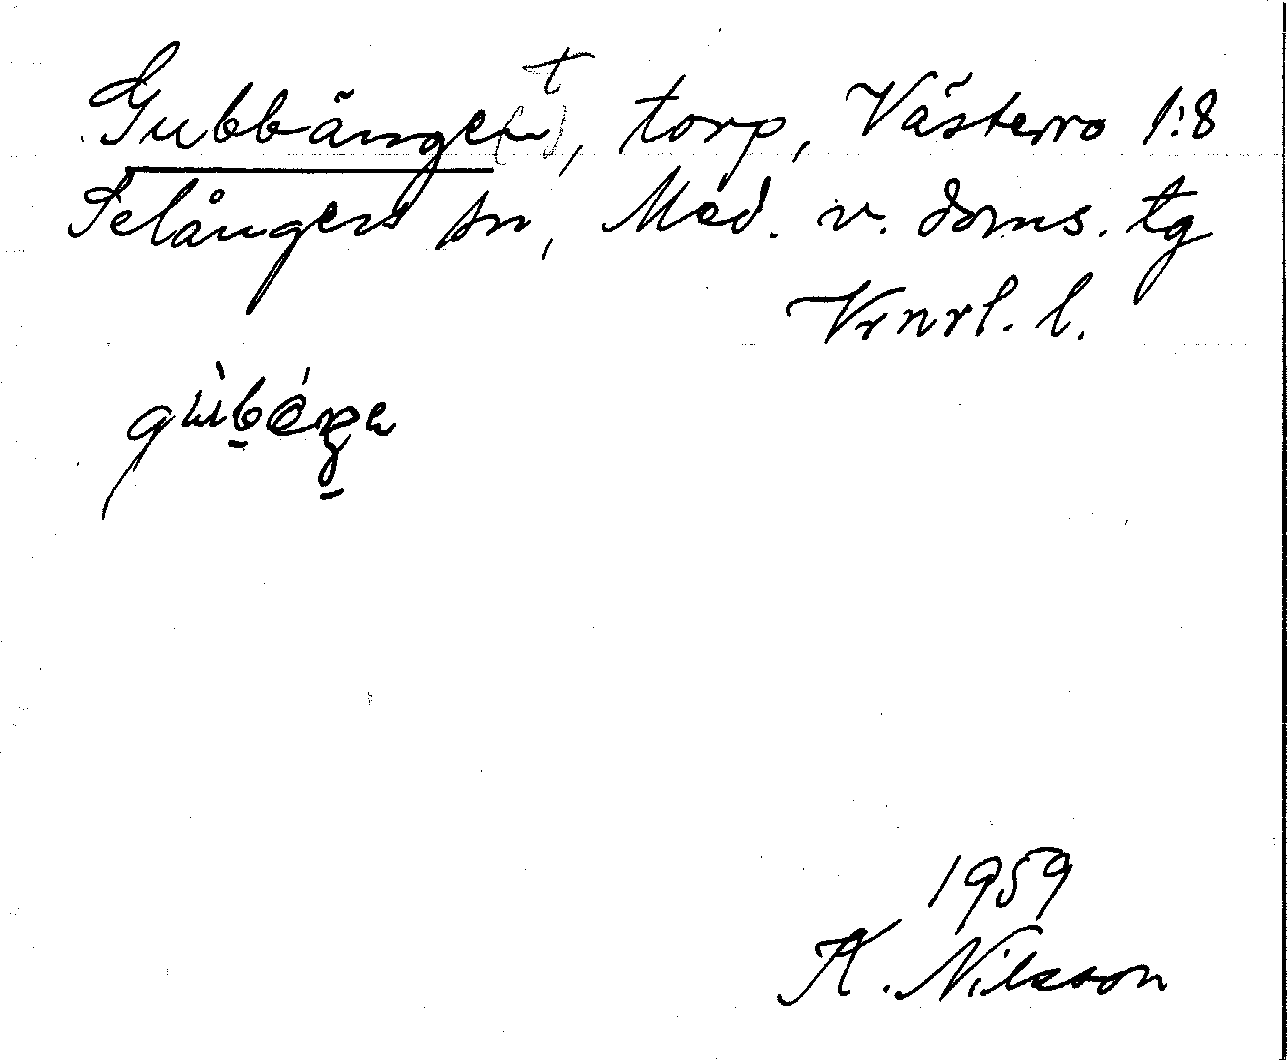 Gubbängen(t), torp, Västerro 1:8
Selångers sn, Med. v. doms. tg
Vrnrl. l.
1959
K. Nilsson